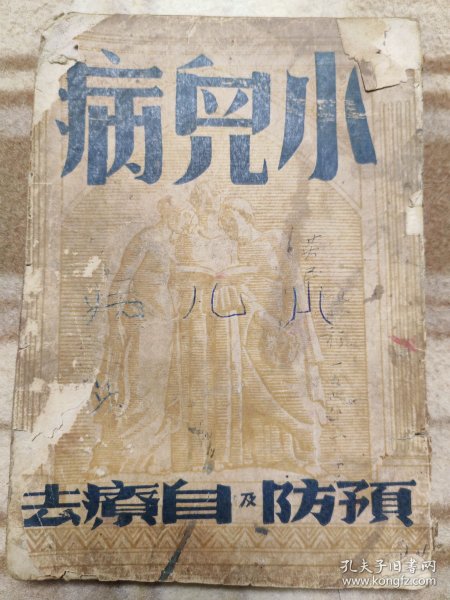 小兒病
小儿病
預防及自療去
孔夫子旧书网
www.kongfz.com